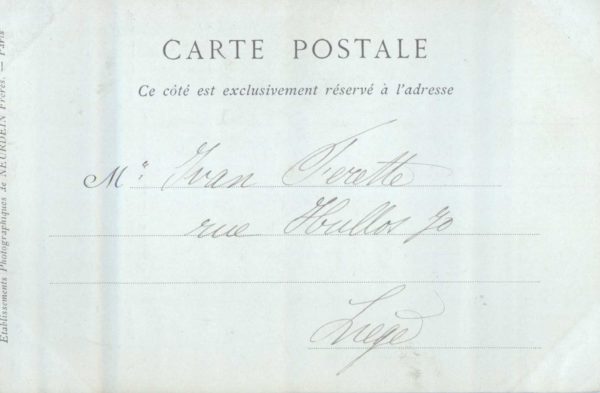 CARTE POSTALE
Ce côté est exclusivement réservé à l'adresse
Mr Ivan Ferette
rue Hullos 70
Liège
Etablissements Photographiques de NEURDEIN Frères. — Paris